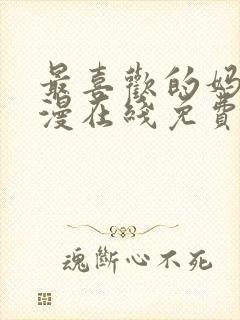 最喜歡的妈
漫在綫免費
魂斷心不死